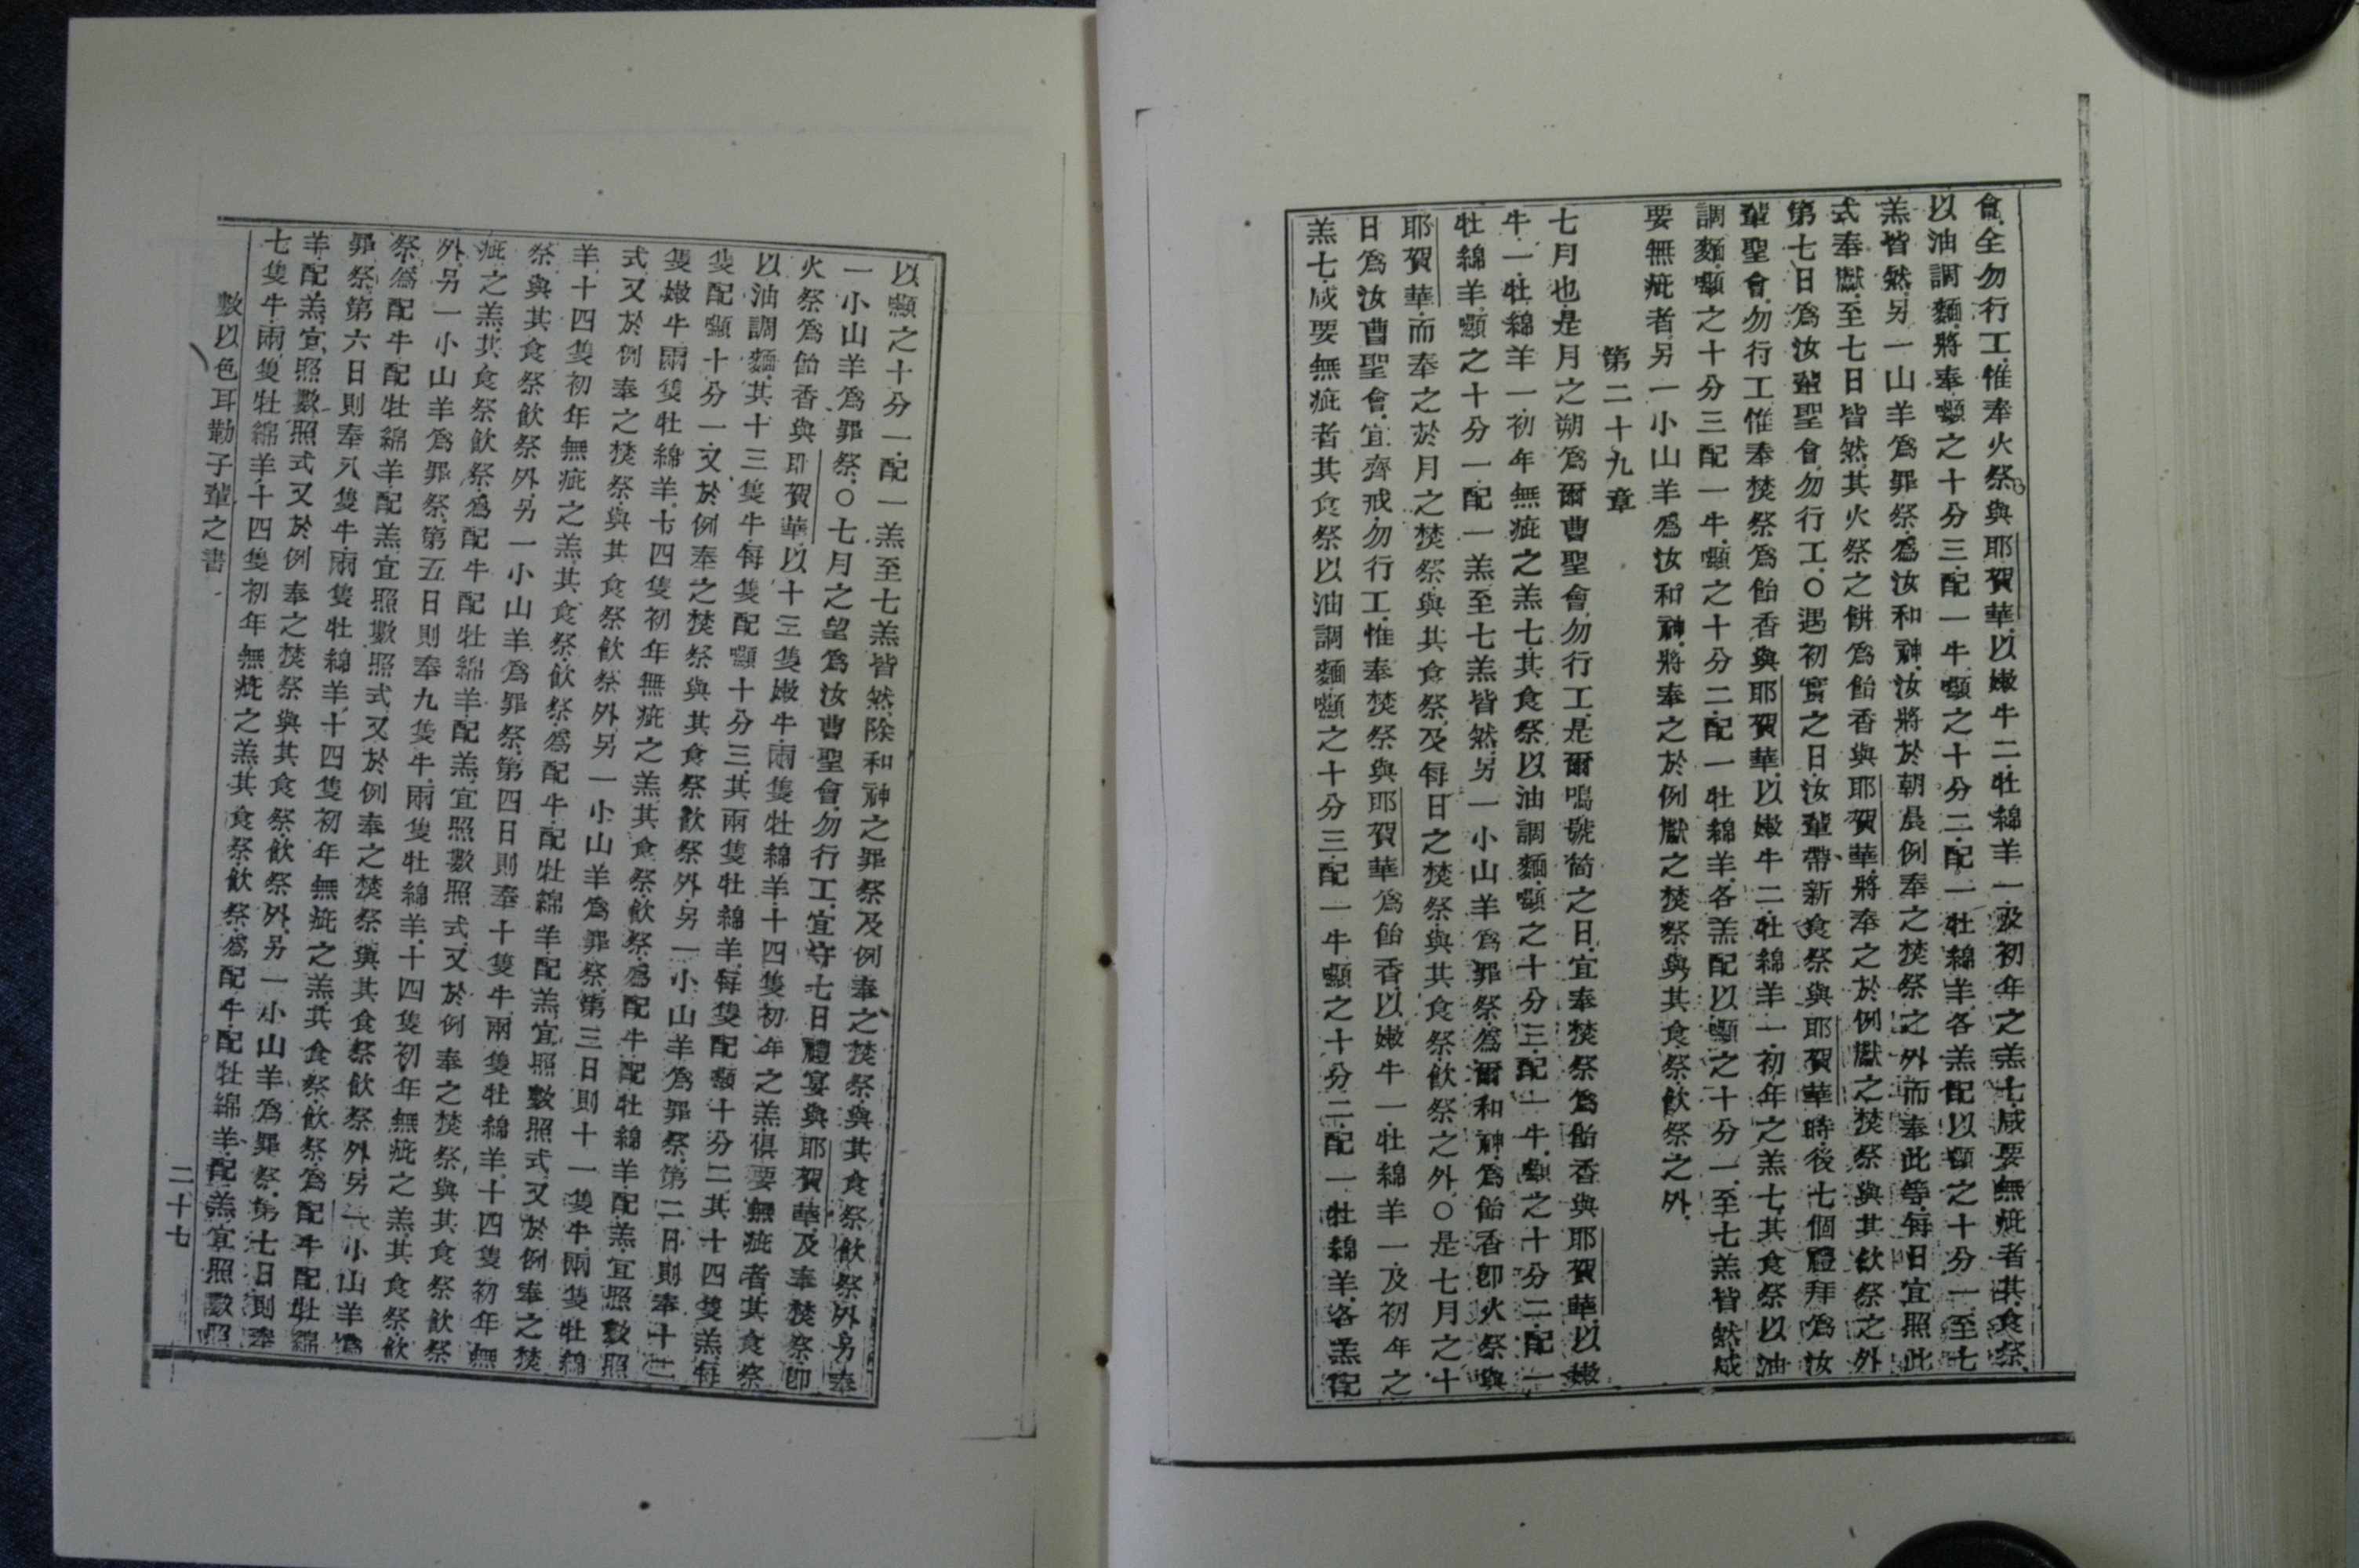 會全勿行工惟奉火祭與耶賀華以嫩牛二牡綿羊一及初年之羔七咸要無疵者其食祭
以油調麵將奉嚬之十分三配一牛嚬之十分二配一牡綿羊各羔配以嚬之十分一至七
羔皆然另一山羊為罪祭為汝和神汝將於朝晨例奉之焚祭之外而奉此等每日宜照此
式奉獻至七日皆然其火祭之餅為飴香與耶賀華將奉之於例獻之焚祭與其飲祭之外
第七日為汝輩聖會勿行工○遇初實之日汝輩帶新食祭與耶賀華時後七個禮拜為汝
輩聖會勿行工惟奉焚祭為飴香與耶賀華以嫩牛二牡綿羊一初年之羔七其食祭以油
調麵嚬之十分三配一牛嚬之十分二配一牡綿羊各羔配以嚬之十分一至七羔皆然咸
要無疵者另一小山羊為汝和神將奉之於例獻之焚祭與其食祭飲祭之外
第二十九章
七月也是月之朔為爾曹聖會勿行工是爾鳴號筒之日宜奉焚祭為飴香與耶賀華以嫩
牛一牡綿羊一初年無疵之羔七其食祭以油調麵嚬之十分三配一牛嚬之十分二配一
牡綿羊嚬之十分一配一羔至七羔皆然另一小山羊為罪祭為爾和神為飴香卽火祭與
耶賀華而奉之於月之焚祭與其食祭及每日之焚祭與其食祭飲祭之外○是七月之十
日為汝曹聖會宜齊戒勿行工惟奉焚祭與耶賀華為飴香以嫩牛一牡綿羊一及初年之
羔七咸要無疵者其食祭以油調麵嚬之十分三配一牛嚬之十分二配一牡綿羊各羔配
以嚬之十分一配一羔至七羔皆然除和神之罪祭及例奉之焚祭與其食祭飲祭外另奉
一小山羊為罪祭○七月之望為汝曹聖會勿行工宜守七日禮宴與耶賀華及奉焚祭卽
火祭為飴香與耶賀華以十三隻嫩牛兩隻牡綿羊十四隻初年之羔俱要無疵者其食祭
以油調麵其十三隻牛每隻配嚬十分三其兩隻牡綿羊每隻配嚬十分二其十四隻羔每
隻配嚬十分一又於例奉之焚祭與其食祭飲祭外另一小山羊為罪祭第二日則奉十二
隻嫩牛兩隻牡綿羊十四隻初年無疵之羔其食祭飲祭為配牛配牡綿羊配羔宜照數照
式又於例奉之焚祭與其食祭飲祭外另一小山羊為罪祭第三日則十一隻牛兩隻牡綿
羊十四隻初年無疵之羔其食祭飲祭為配牛配牡綿羊配羔宜照數照式又於例奉之焚
祭與其食祭飲祭外另一小山羊為罪祭第四日則奉十隻牛兩隻牡綿羊十四隻初年無
疵之羔其食祭飲祭為配牛配牡綿羊配羔宜照數照式又於例奉之焚祭與其食祭飲祭
外另一小山羊為罪祭第五日則奉九隻牛兩隻牡綿羊十四隻初年無疵之羔其食祭飲
祭為配牛配牡綿羊配羔宜照數照式又於例奉之焚祭與其食祭飲祭外另一小山羊為
罪祭第六日則奉八隻牛兩隻牡綿羊十四隻初年無疵之羔其食祭飲祭為配牛配牡綿
羊配羔宜照數照式又於例奉之焚祭與其食祭飲祭外另一小山羊為罪祭第七日則奉
七隻牛兩隻牡綿羊十四隻初年無疵之羔其食祭飲祭為配牛配牡綿羊配羔宜照數照
數以色耳勒子輩之書
二十七